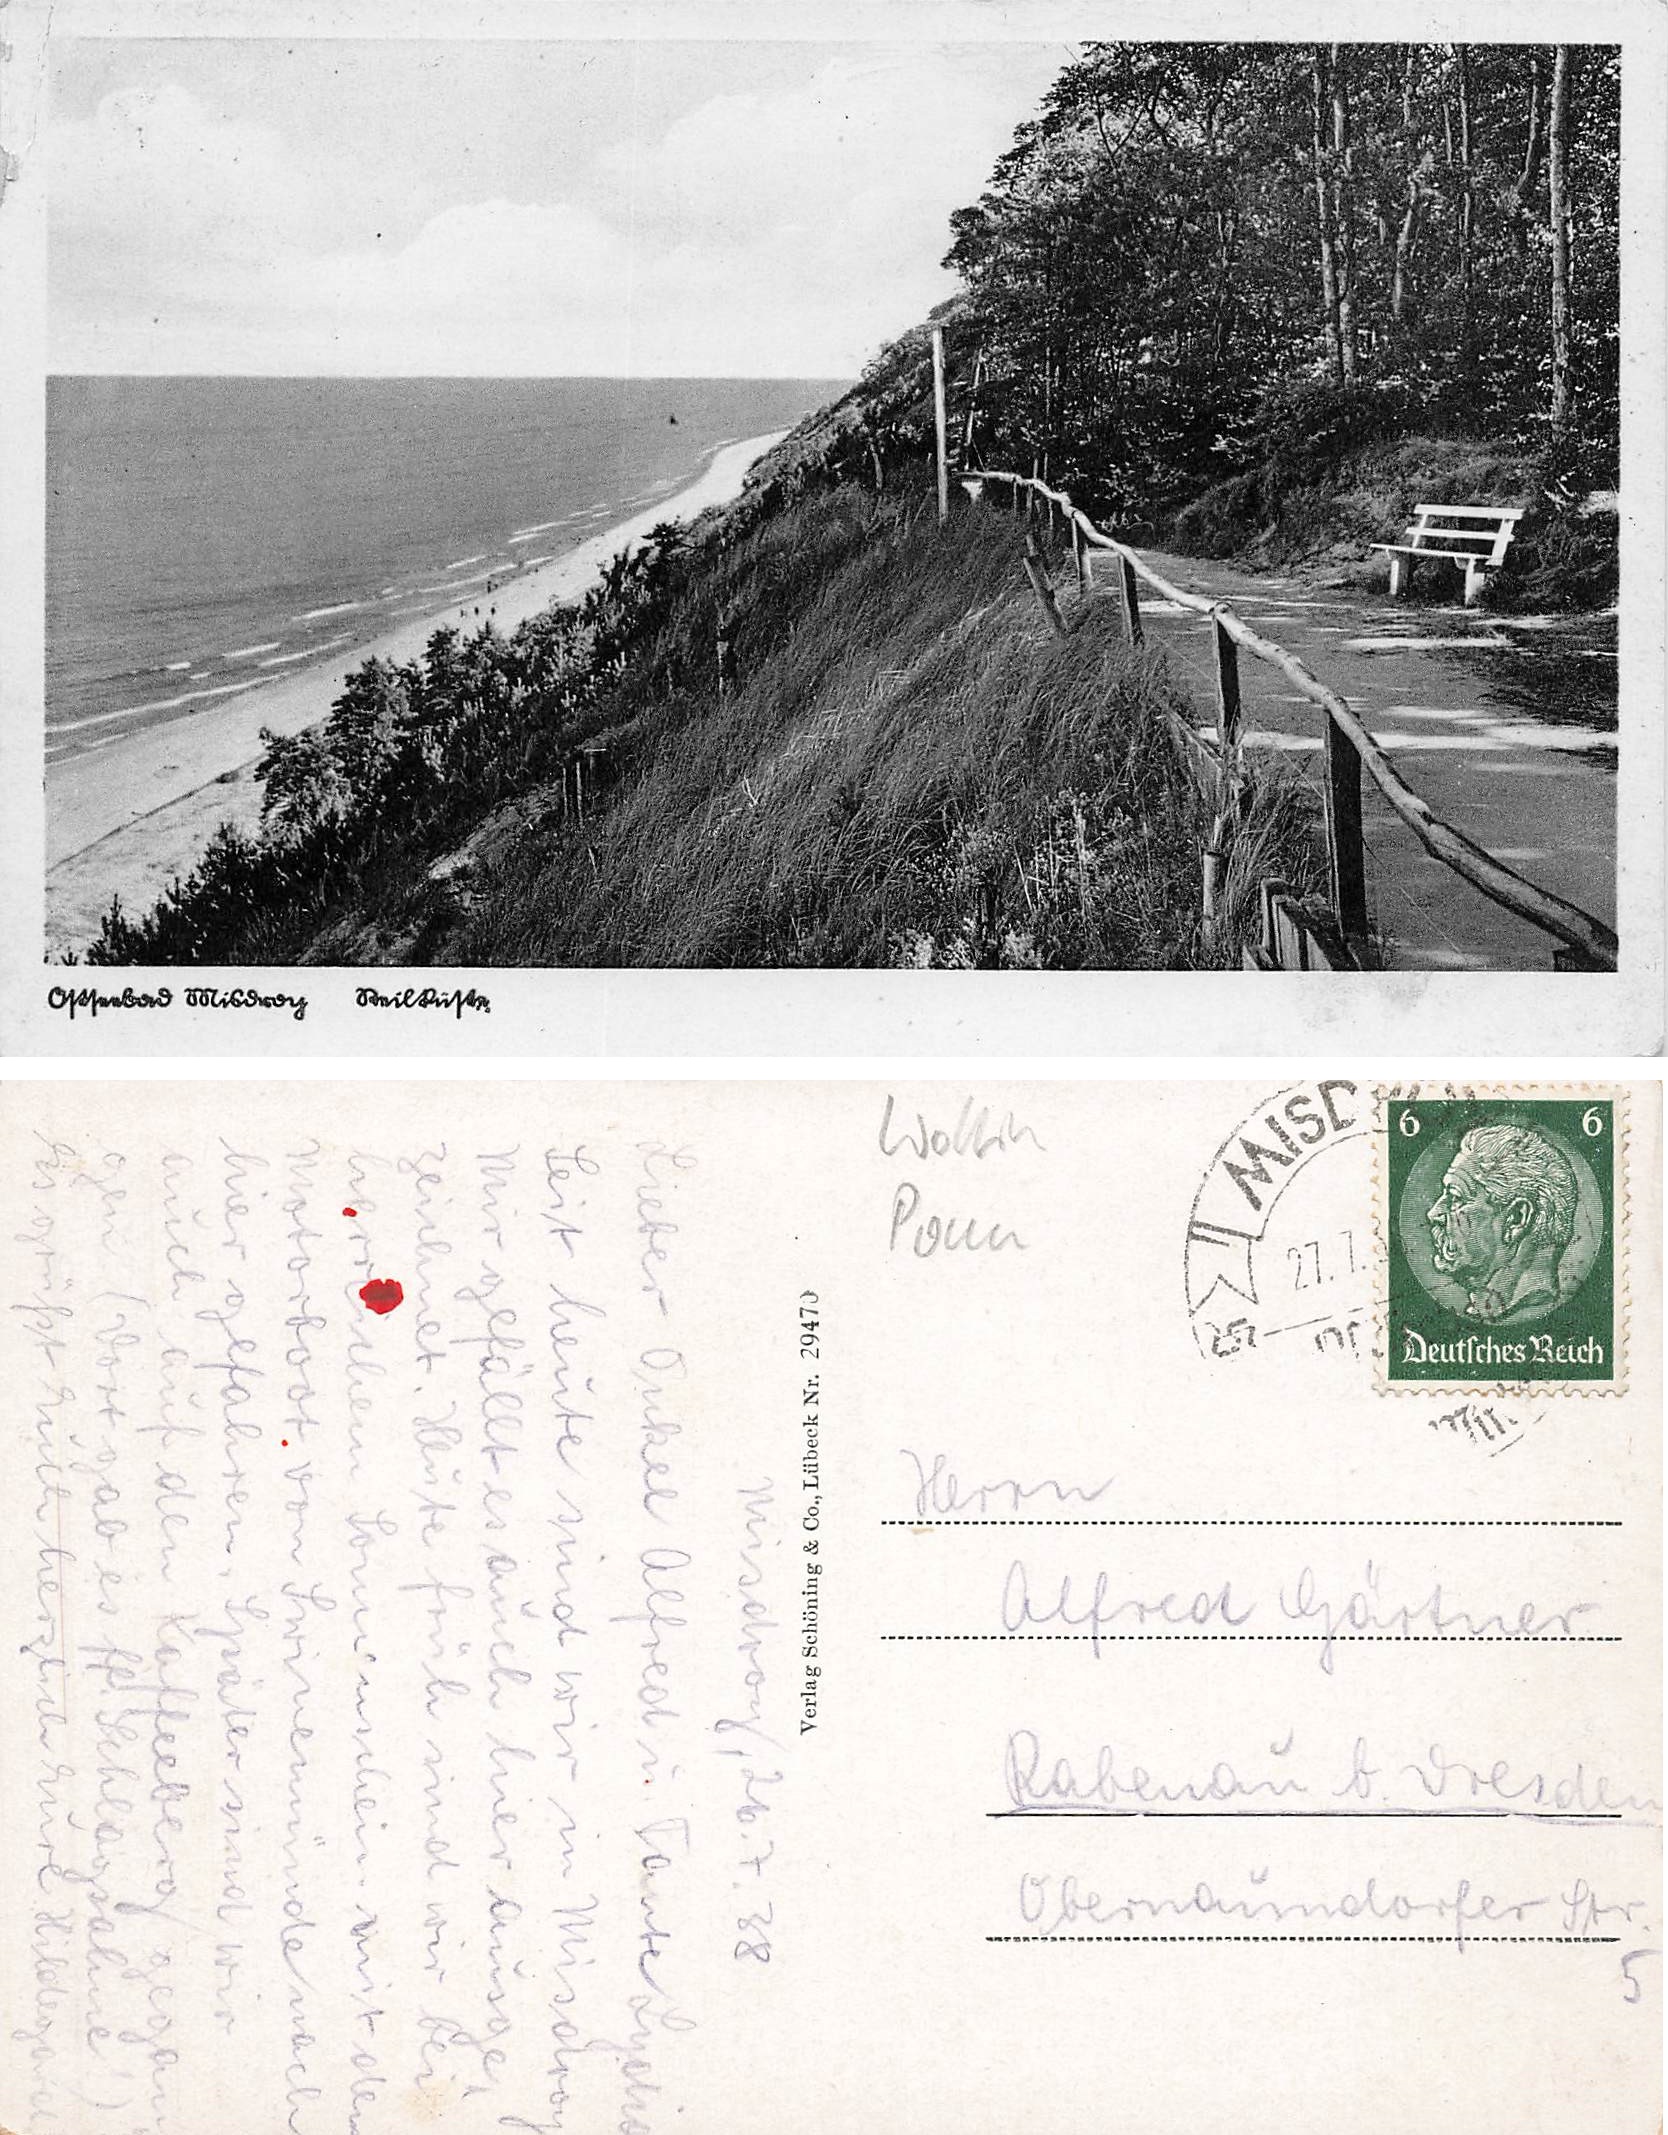 Ostseebad Misdroy Steilküste
Wollin
Pom
MISD
27.7.
6 6
Deutsches Reich
Misdroy, 26.7.38
Lieber Onkel Alfred u. Tante Lydia
Seit heute sind wir in Misdroy
Mir gefällt es auch hier ausge,
zeichnet. Heute früh sind wir bei
herrlichem Sonnenschein mit dem
Motorboot von Swinemünde nach
hier gefahren. Später sind wir
auch auf den Kaffeeberg gegan
gen (Dort gab es ff Schlagsahne!)
Es grüßt Euch herzlich Eure Hildegard
Verlag Schöning & Co., Lübeck Nr. 29470
Herrn
Alfred Gärtner
Rabenau b. Dresden
Obernaundorfer Str.
5